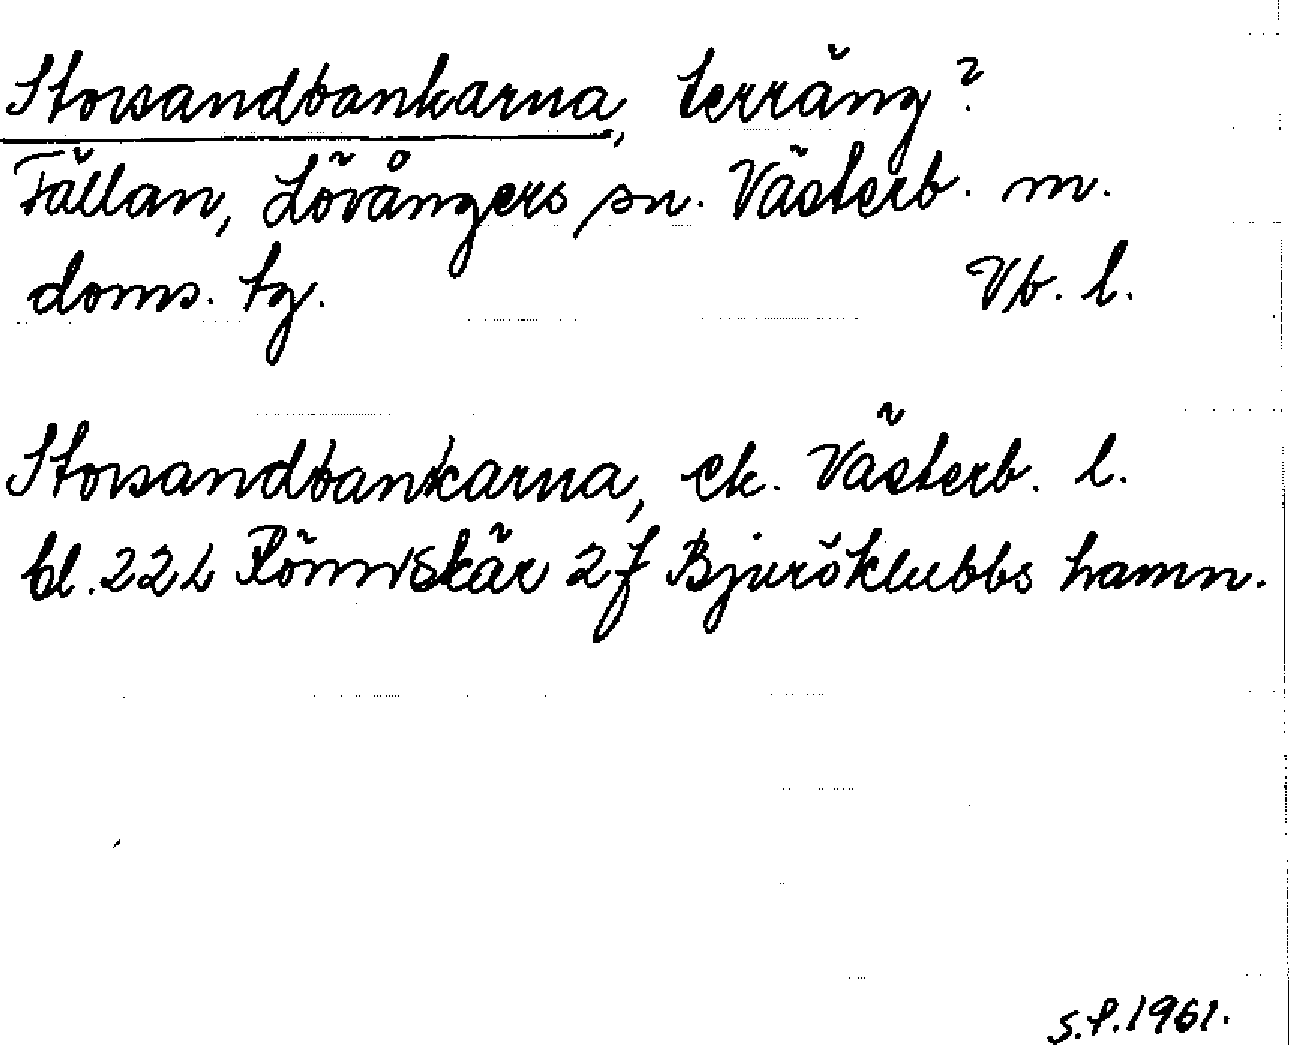 Storsandbankarna, terräng?
Fällan, Lövångers sn. Västerb. m.
doms. tg. Vb. l.
Storsandbankarna, ek. Västerb. l.
bl. 22L Rönnskär 2f Bjuröklubbs hamn.
S.P.1961.